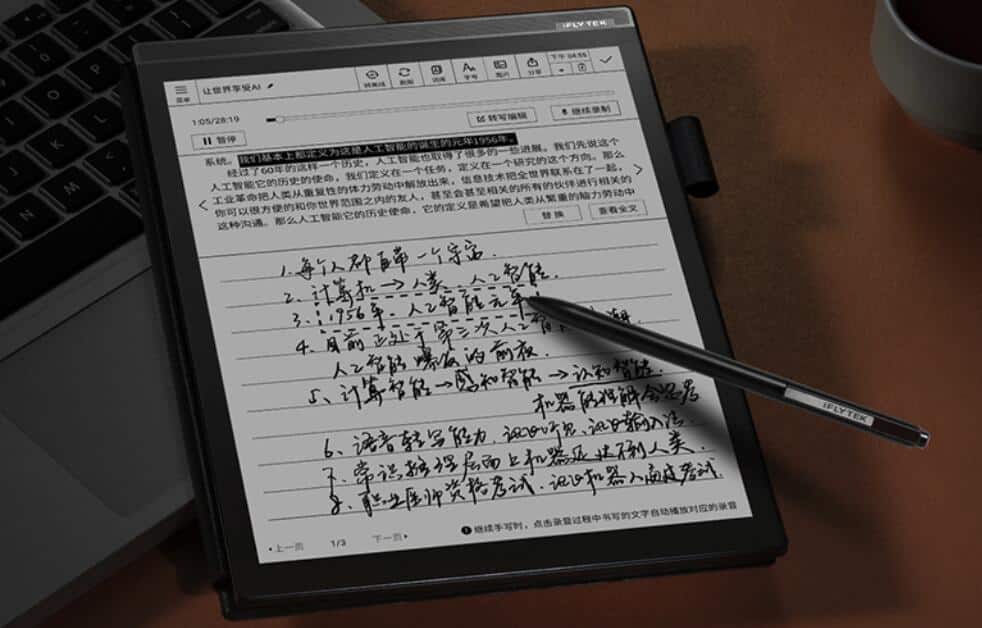 iFLYTEK
下午 04:56
让世界享受AI
菜单 刷新 词库 字号 图片 分享
1:05/28:19
转写编辑 继续录制
暂停
系统。我们基本上都定义为这是人工智能的诞生的元年1956年。
经过了60年的这样一个历史，人工智能也取得了很多的一些进展。我们先说这个
人工智能它的历史的使命，我们定义在一个任务，定义在一个研究的这个方向。那么
工业革命把人类从重复性的体力劳动中解放出来，信息技术把全世界联系在了一起，
你可以很方便的和你世界范围之内的友人，甚至会甚至相关的所有的伙伴进行相关的
这种沟通。那么人工智能它的历史使命，它的定义是希望把人类从繁重的脑力劳动中
替换 查看全文
1.每个人都自带一个宇宙.
2、计算机→人类、人工智能.
3、1956年、人工智能元年
4、目前正处于第三次人工智
人工智能爆发的前夜.
5、计算智能→感知智能→认知智能.
机器能理解会思考
6、语音转写能力, 输入法.
7、常识推理层面上机器还达不到人类.
8、职业医师资格考试. 机器人 考试.
上一页 1/3 下一页
继续手写时，点击录音过程中书写的文字自动播放对应的录音
iFLYTEK